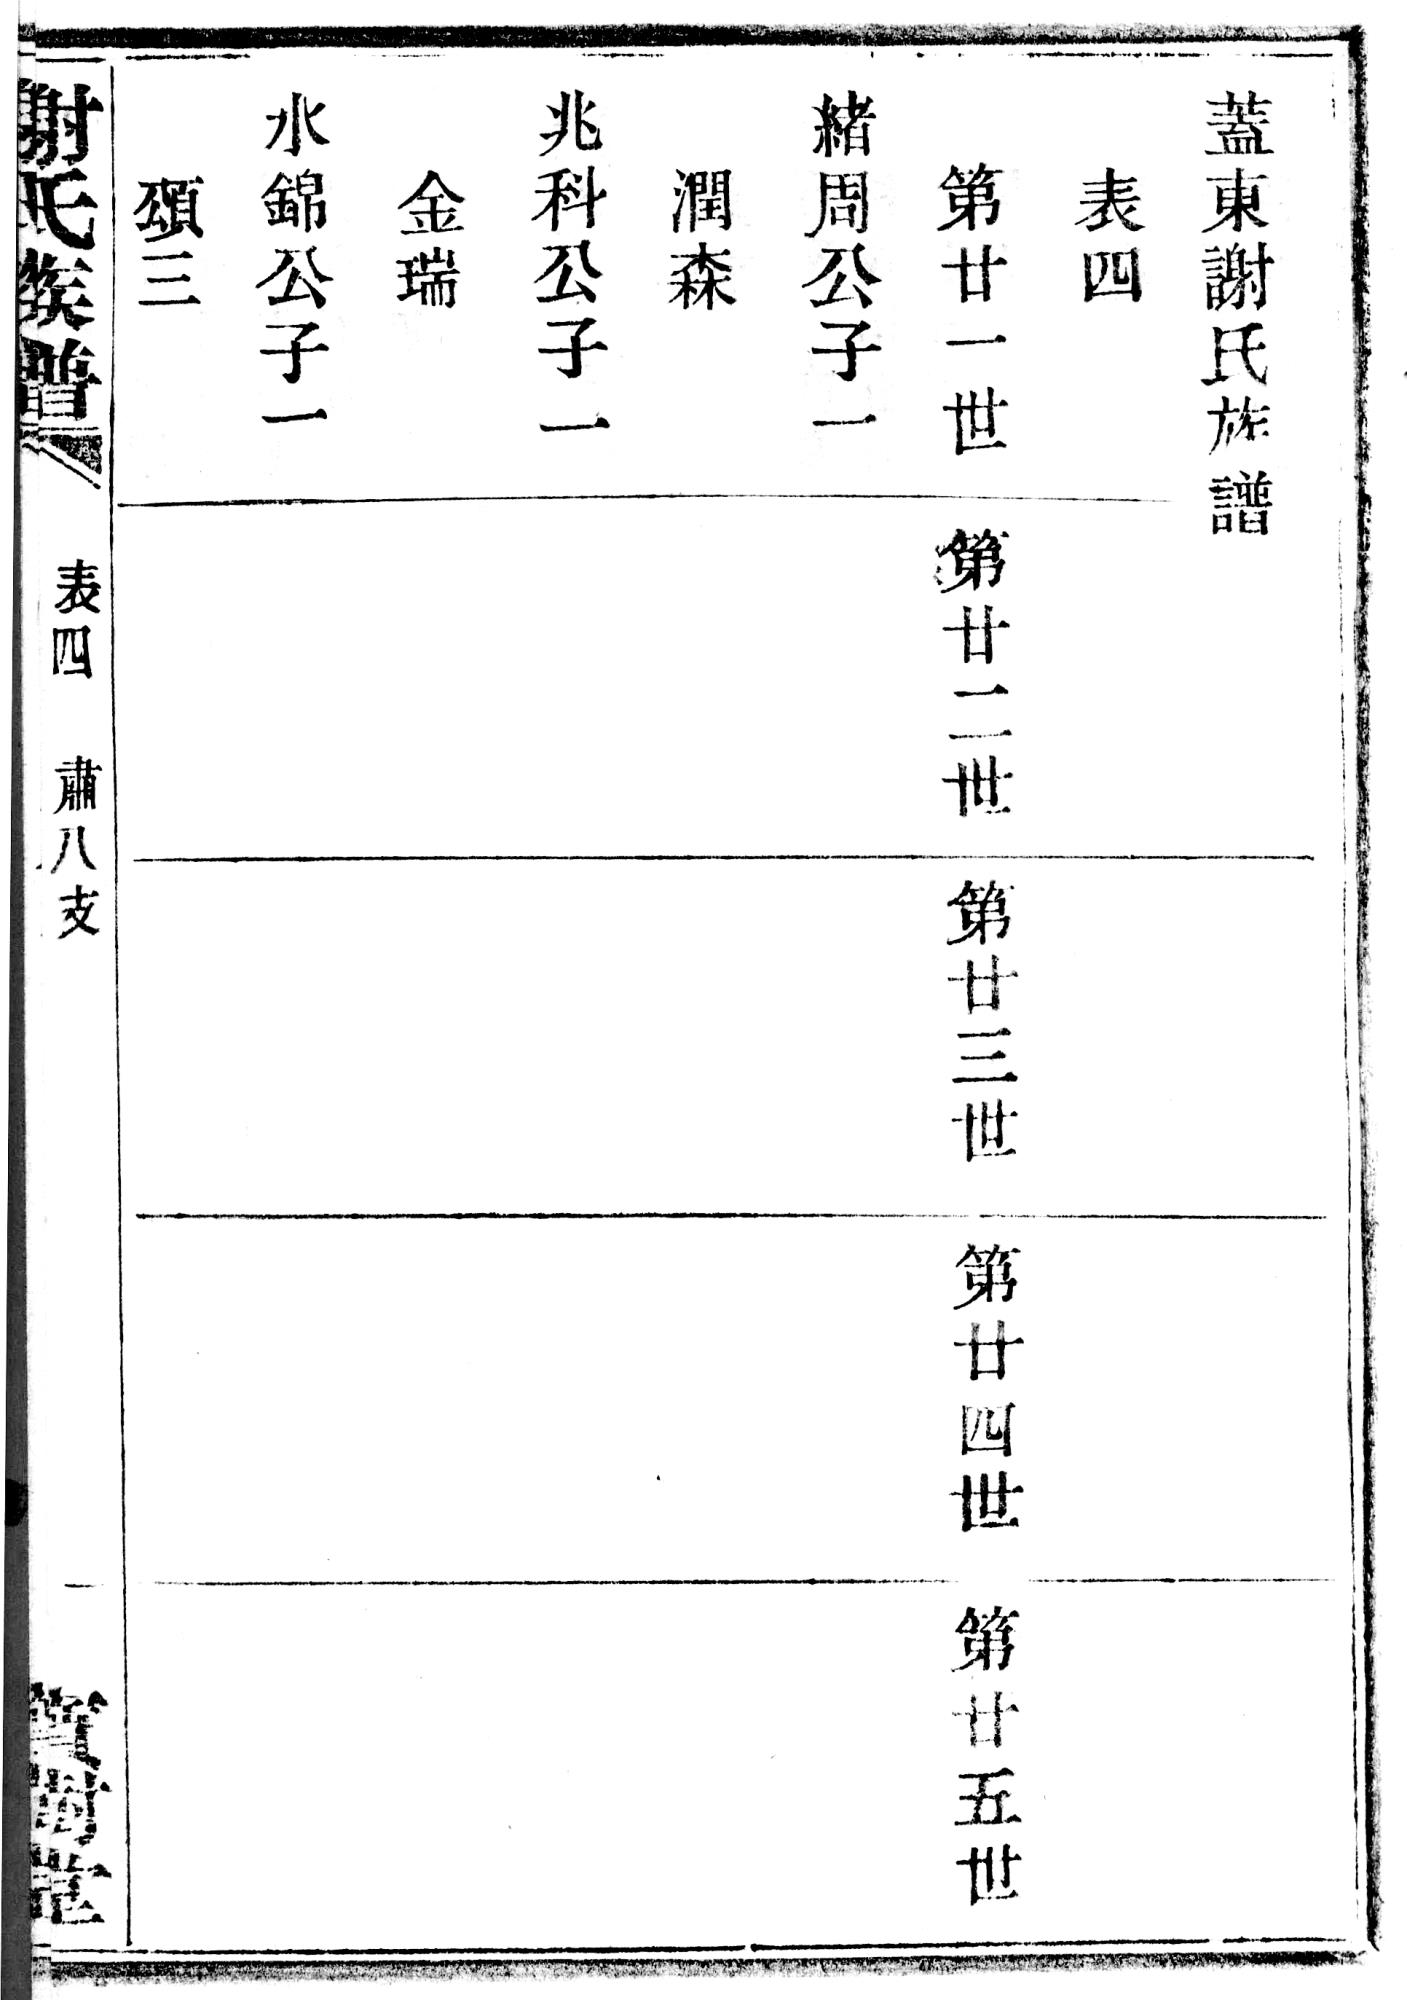 蓋東謝氏族譜
表四
第廿一世
第廿二世
第廿三世
第廿四世
第廿五世
緒周公子一
潤森
兆科公子一
金瑞
水錦公子一
頌三
謝氏族譜
表四
肅八支
一
堂